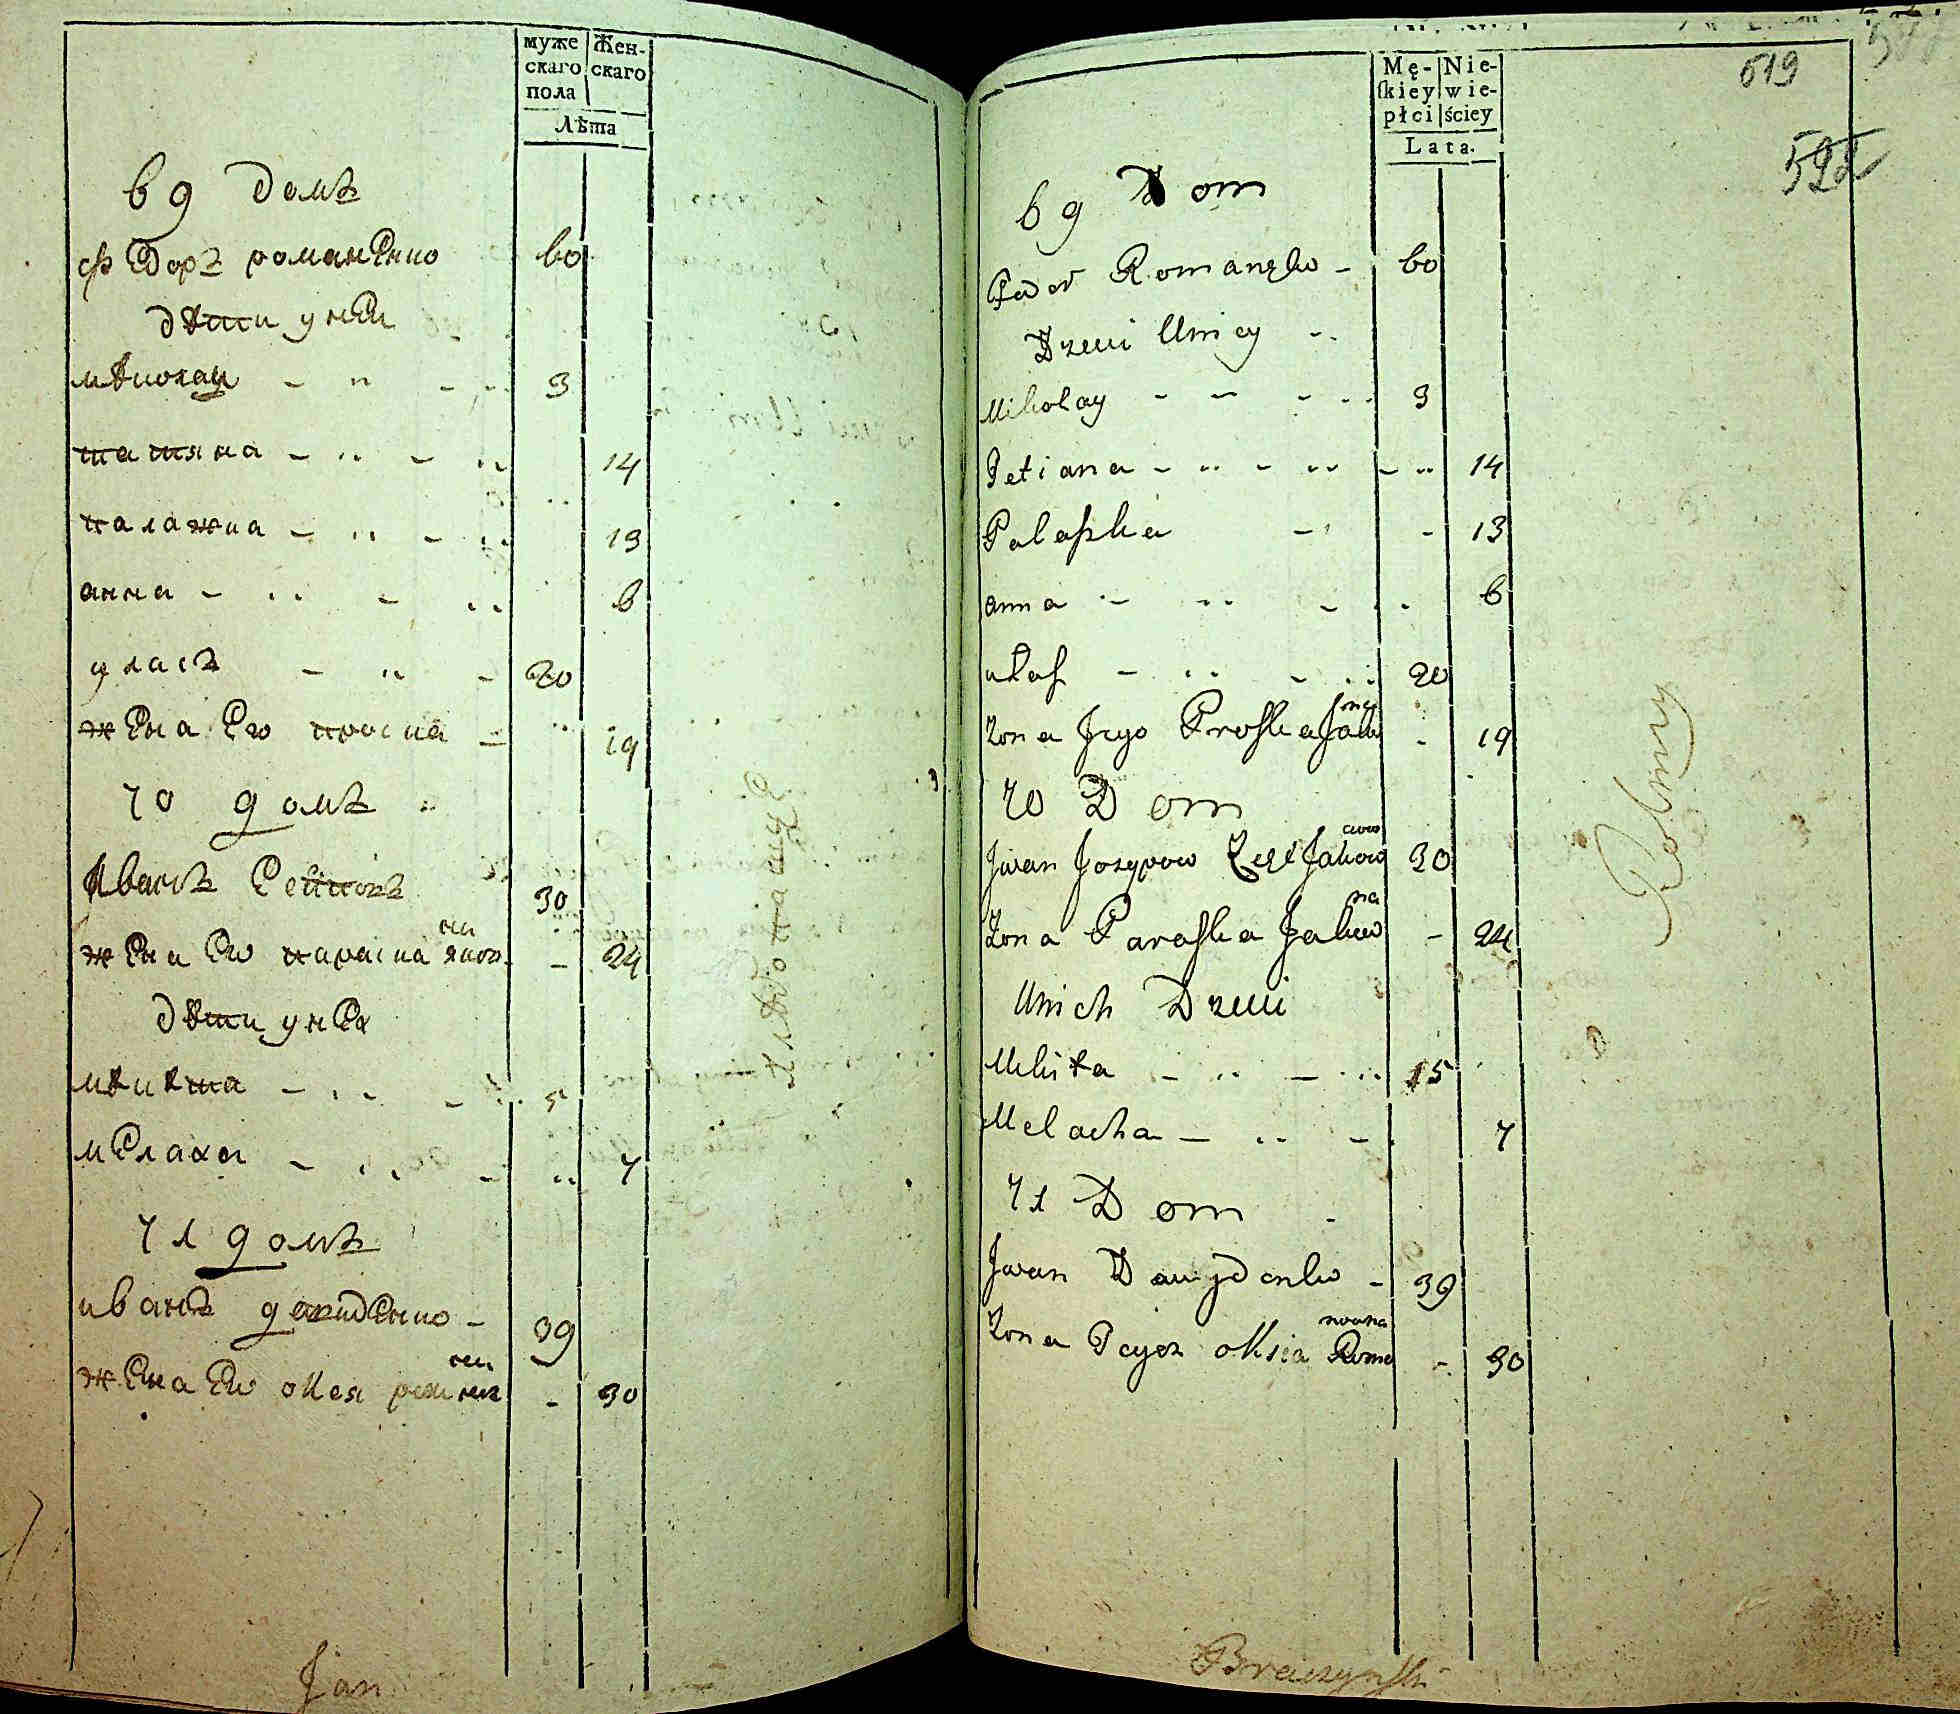 муже
скаго
пола
Жен-
скаго
Лѣта
69 домъ
Федоръ романенко 60
дѣти унеи
мѣколаи 9
татяна 14
палажка 13
анна 6
уласъ 20
жена его проска 19
70 домъ
жена его параска 24
дѣти унех
мѣкѣта 5
мелаха 7
71 домъ
иванъ давиденко 39
жена его окся 30
Jan
Mę-
skiey
płci
Nie-
wie-
ściey
Lata.
519
69 Dom
Fedor Romanęko 60
Dzeci Uniey
Mikolay 9
Tetiana 14
Palaszka 13
anna 6
ułas 20
Zona Jego Proska 19
70 Dom
Jwan Jozypow 30
Zona Paraska Jakowna 24
Unich Dzeci
Mikita 15
Melacha 7
71 Dom
Jwan Dawydenko 39
Zona Jeyoz oksia Romanowna 30